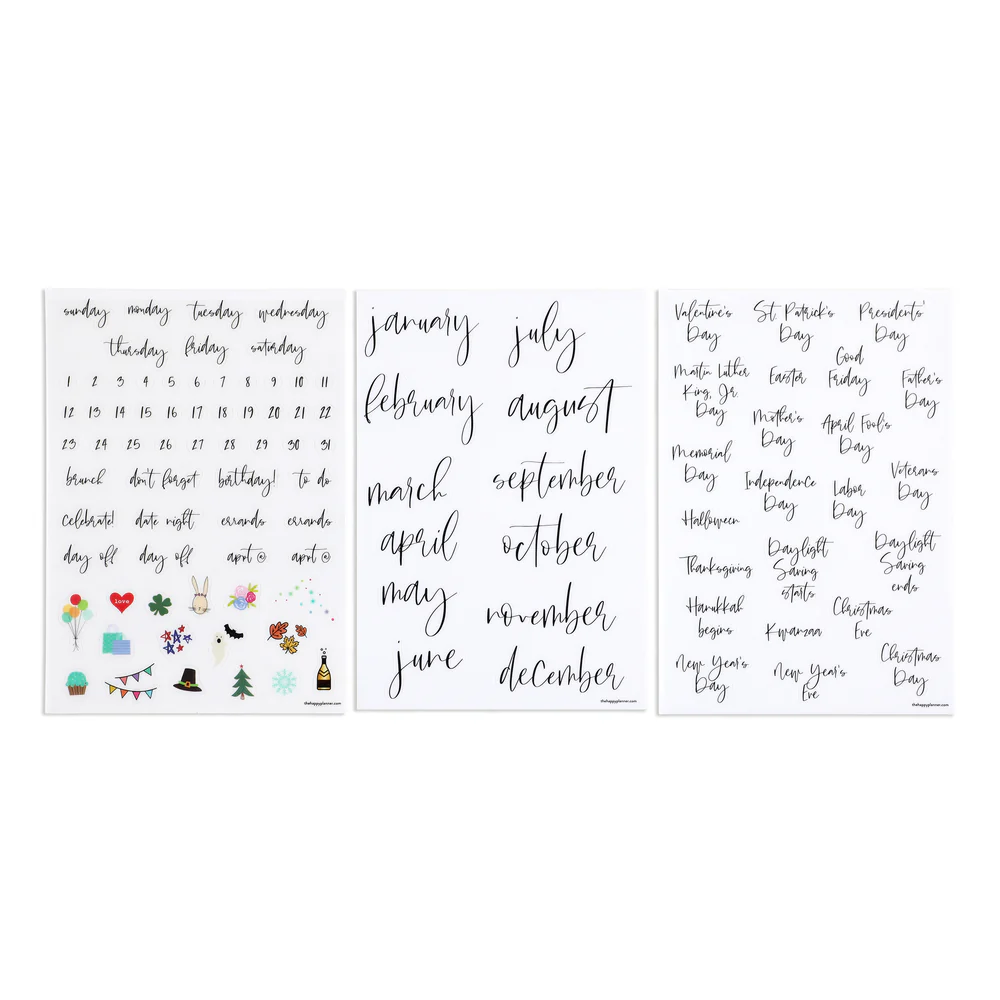 sunday monday tuesday wednesday
thursday friday saturday
1 2 3 4 5 6 7 8 9 10 11
12 13 14 15 16 17 18 19 20 21 22
23 24 25 26 27 28 29 30 31
brunch don't forget birthday! to do
celebrate! date night errands errands
day off day off appt @ appt @
love
thehappyplanner.com
january
february
march
april
may
june
july
august
september
october
november
december
thehappyplanner.com
Valentine's
Day
St. Patrick's
Day
Presidents'
Day
Martin Luther
King, Jr.
Day
Easter
Good
Friday
Father's
Day
Mother's
Day
April Fool's
Day
Memorial
Day
Independence
Day
Labor
Day
Veterans
Day
Halloween
Thanksgiving
Daylight
Saving
starts
Daylight
Saving
ends
Hanukkah
begins
Kwanzaa
Christmas
Eve
New Year's
Day
New Year's
Eve
Christmas
Day
thehappyplanner.com